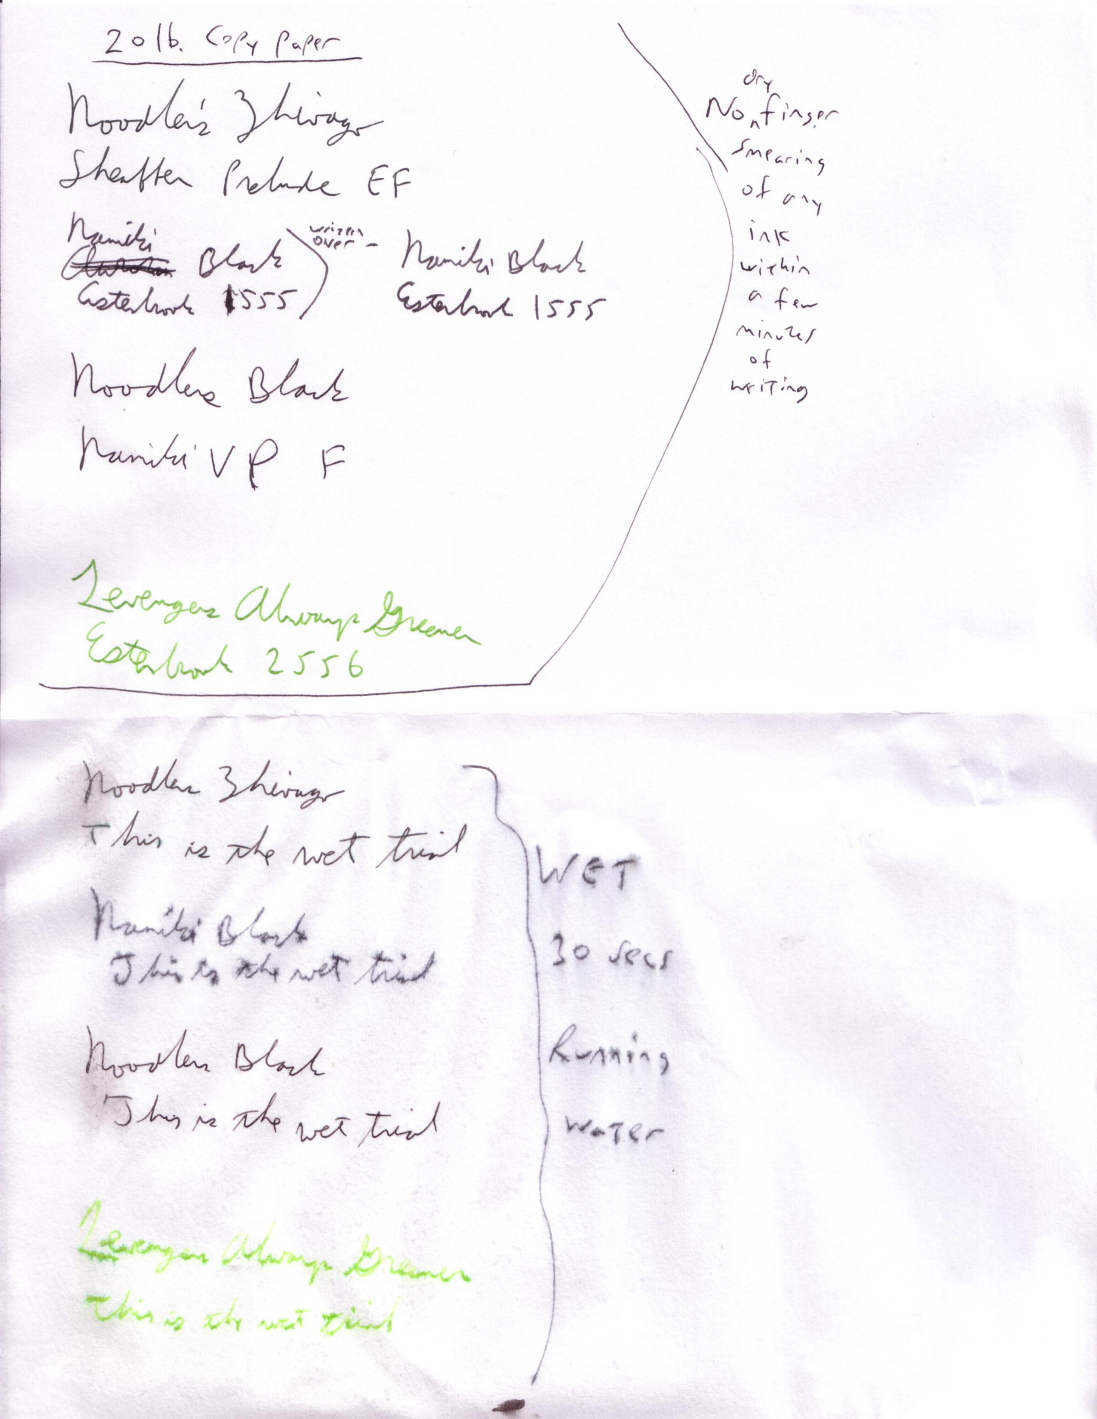 20 lb. Copy Paper
Noodler's Zhivago
Sheaffer Prelude EF
Namiki
Black
Esterbrook 1555
written
over -
Namiki Black
Esterbrook 1555
Noodlers Black
Namiki VP F
Levengers Always Greener
Esterbrook 2556
dry
No finger
smearing
of any
ink
within
a few
minutes
of
writing
Noodlers Zhivago
This is the wet trial
Namiki Black
This is the wet trial
Noodlers Black
This is the wet trial
Levengers Always Greener
This is the wet trial
WET
30 secs
Running
water